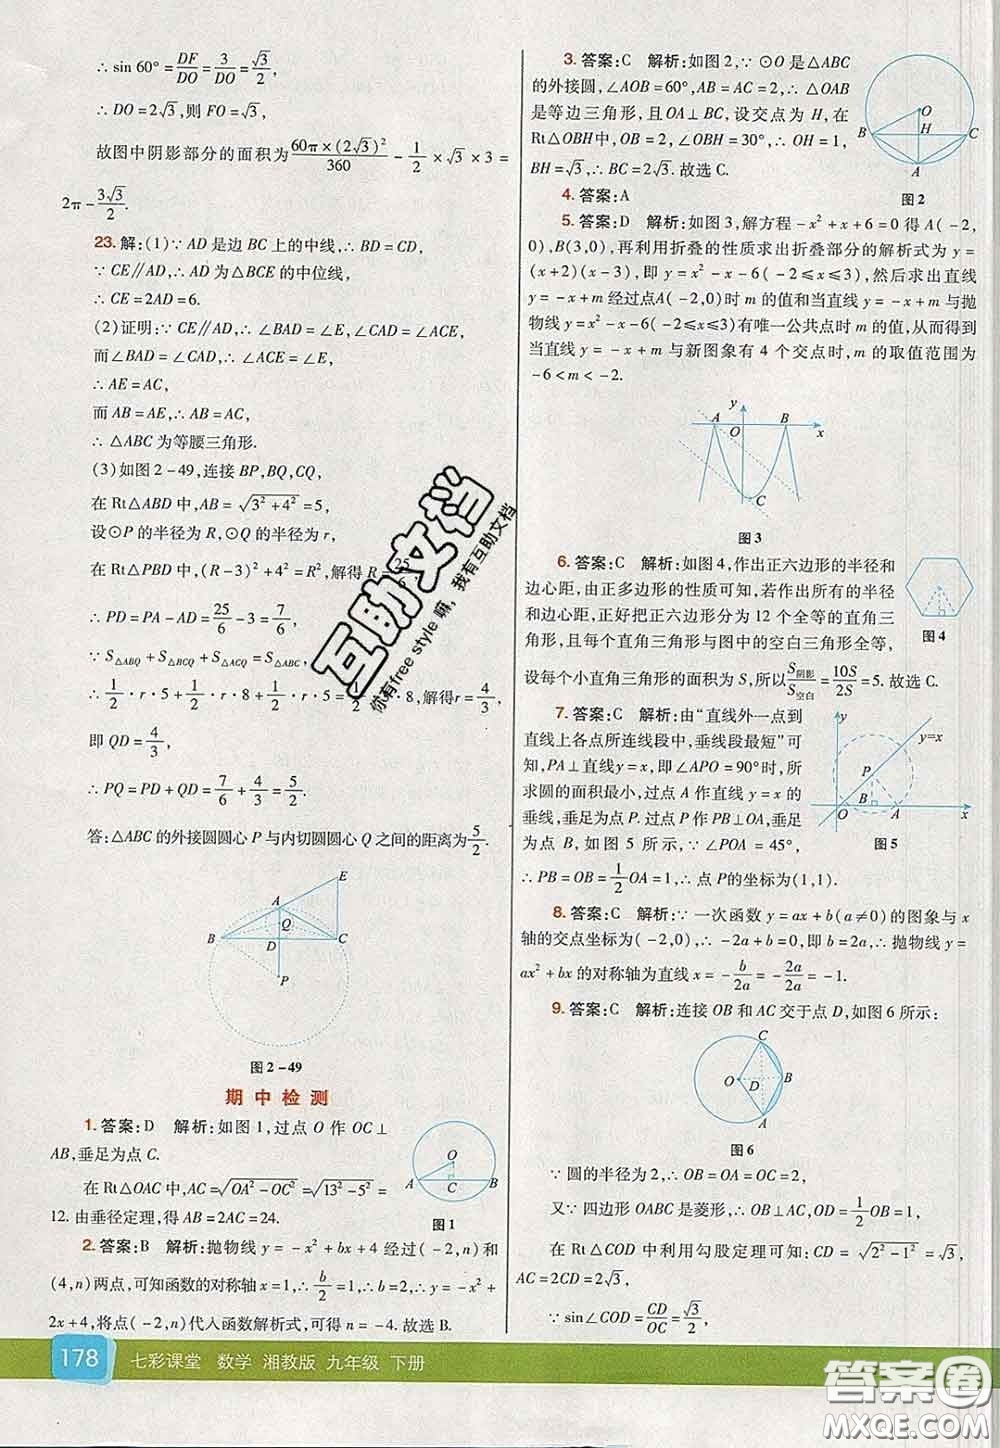 ∴ sin 60° = DF/DO = 3/DO = √3/2,
∴ DO = 2√3, 则 FO = √3,
故图中阴影部分的面积为 60π×(2√3)²/360 − 1/2 × √3 × 3 =
2π − 3√3/2.
23.解:(1)∵ AD 是边 BC 上的中线,∴ BD = CD,
∵ CE∥AD,∴ AD 为△BCE 的中位线,
∴ CE = 2AD = 6.
(2)证明:∵ CE∥AD,∴ ∠BAD = ∠E,∠CAD = ∠ACE,
而∠BAD = ∠CAD,∴ ∠ACE = ∠E,
∴ AE = AC,
而 AB = AE,∴ AB = AC,
∴ △ABC 为等腰三角形.
(3)如图 2-49,连接 BP,BQ,CQ,
在 Rt△ABD 中,AB = √(3² + 4²) = 5,
设⊙P 的半径为 R,⊙Q 的半径为 r,
在 Rt△PBD 中,(R − 3)² + 4² = R²,解得 R =
∴ PD = PA − AD = 25/6 − 3 = 7/6,
∵ S△ABQ + S△BCQ + S△ACQ = S△ABC,
∴ 1/2 · r · 5 + 1/2 · r · 8 + 1/2 · r · 5 = · 8,解得 r = 4/3,
即 QD = 4/3,
∴ PQ = PD + QD = 7/6 + 4/3 = 5/2.
答:△ABC 的外接圆圆心 P 与内切圆圆心 Q 之间的距离为 5/2.
E
A
Q
B
D
C
P
图 2-49
期中检测
1. 答案:D 解析:如图 1,过点 O 作 OC⊥
AB,垂足为点 C.
在 Rt△OAC 中,AC = √(OA² − OC²) = √(13² − 5²) =
12. 由垂径定理,得 AB = 2AC = 24.
O
A
C
B
图 1
2. 答案:B 解析:抛物线 y = −x² + bx + 4 经过(−2,n)和
(4,n)两点,可知函数的对称轴 x = 1,∴ b/2 = 1,∴ b = 2,∴ y = −x² +
2x + 4,将点(−2,n)代入函数解析式,可得 n = −4. 故选 B.
3. 答案:C 解析:如图 2,∵ ⊙O 是△ABC
的外接圆,∠AOB = 60°,AB = AC = 2,∴ △OAB
是等边三角形,且 OA⊥BC,设交点为 H,在
Rt△OBH 中,OB = 2,∠OBH = 30°,∴ OH = 1,
BH = √3,∴ BC = 2√3. 故选 C.
O
B
H
C
A
图 2
4. 答案:A
5. 答案:D 解析:如图 3,解方程 −x² + x + 6 = 0 得 A(−2,
0),B(3,0),再利用折叠的性质求出折叠部分的解析式为 y =
(x + 2)(x − 3),即 y = x² − x − 6(−2≤x≤3),然后求出直线
y = −x + m 经过点A(−2,0)时 m 的值和当直线 y = −x + m 与抛
物线 y = x² − x − 6(−2≤x≤3)有唯一公共点时 m 的值,从而得到
当直线 y = −x + m 与新图象有 4 个交点时,m 的取值范围为
−6 < m < −2.
y
A
B
O
x
C
图 3
6. 答案:C 解析:如图 4,作出正六边形的半径和
边心距,由正多边形的性质可知,若作出所有的半径
和边心距,正好把正六边形分为 12 个全等的直角三
角形,且每个直角三角形与图中的空白三角形全等,
设每个小直角三角形的面积为 S,所以 S阴影/S空白 = 10S/2S = 5. 故选 C.
图 4
7. 答案:C 解析:由“直线外一点到
直线上各点所连线段中,垂线段最短”可
知,PA⊥直线y = x,即∠APO = 90°时,所
求圆的面积最小,过点 A 作直线 y = x 的
垂线,垂足为点 P. 过点 P 作 PB⊥OA,垂足
为点 B,如图 5 所示,∵ ∠POA = 45°,
∴ PB = OB = 1/2 OA = 1,∴ 点 P的坐标为(1,1).
y
y=x
P
B
O
A
x
图 5
8. 答案:C 解析:∵ 一次函数 y = ax + b(a≠0)的图象与 x
轴的交点坐标为(−2,0),∴ −2a + b = 0,即 b = 2a,∴ 抛物线 y =
ax² + bx 的对称轴为直线 x = −b/2a = −2a/2a = −1.
9. 答案:C 解析:连接 OB 和 AC 交于点 D,如图 6 所示:
C
O
D
B
A
图 6
∵ 圆的半径为 2,∴ OB = OA = OC = 2,
又∵ 四边形 OABC 是菱形,∴ OB⊥AC,OD = 1/2 OB = 1,
在 Rt△COD 中利用勾股定理可知:CD = √(2² − 1²) = √3,
AC = 2CD = 2√3,
∵ sin∠COD = CD/OC = √3/2,
互助文档
你有free style 嘛,我有互助文档
178 七彩课堂 数学 湘教版 九年级 下册
答案圈
MXQE.COM